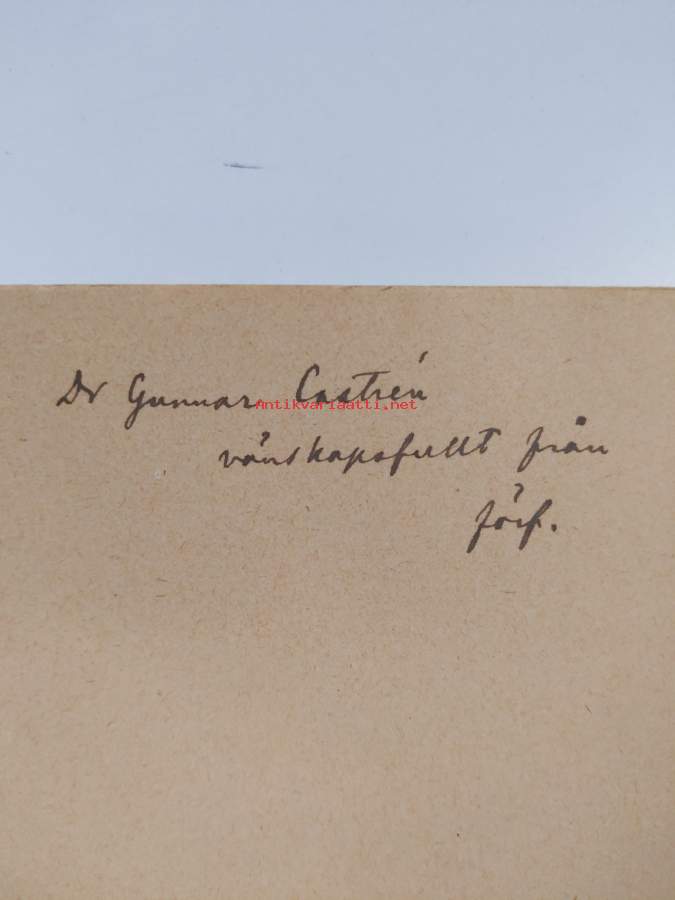 Dr Gunnar Castrén
Antikvariaatti.net
vänskapsfullt från
förf.